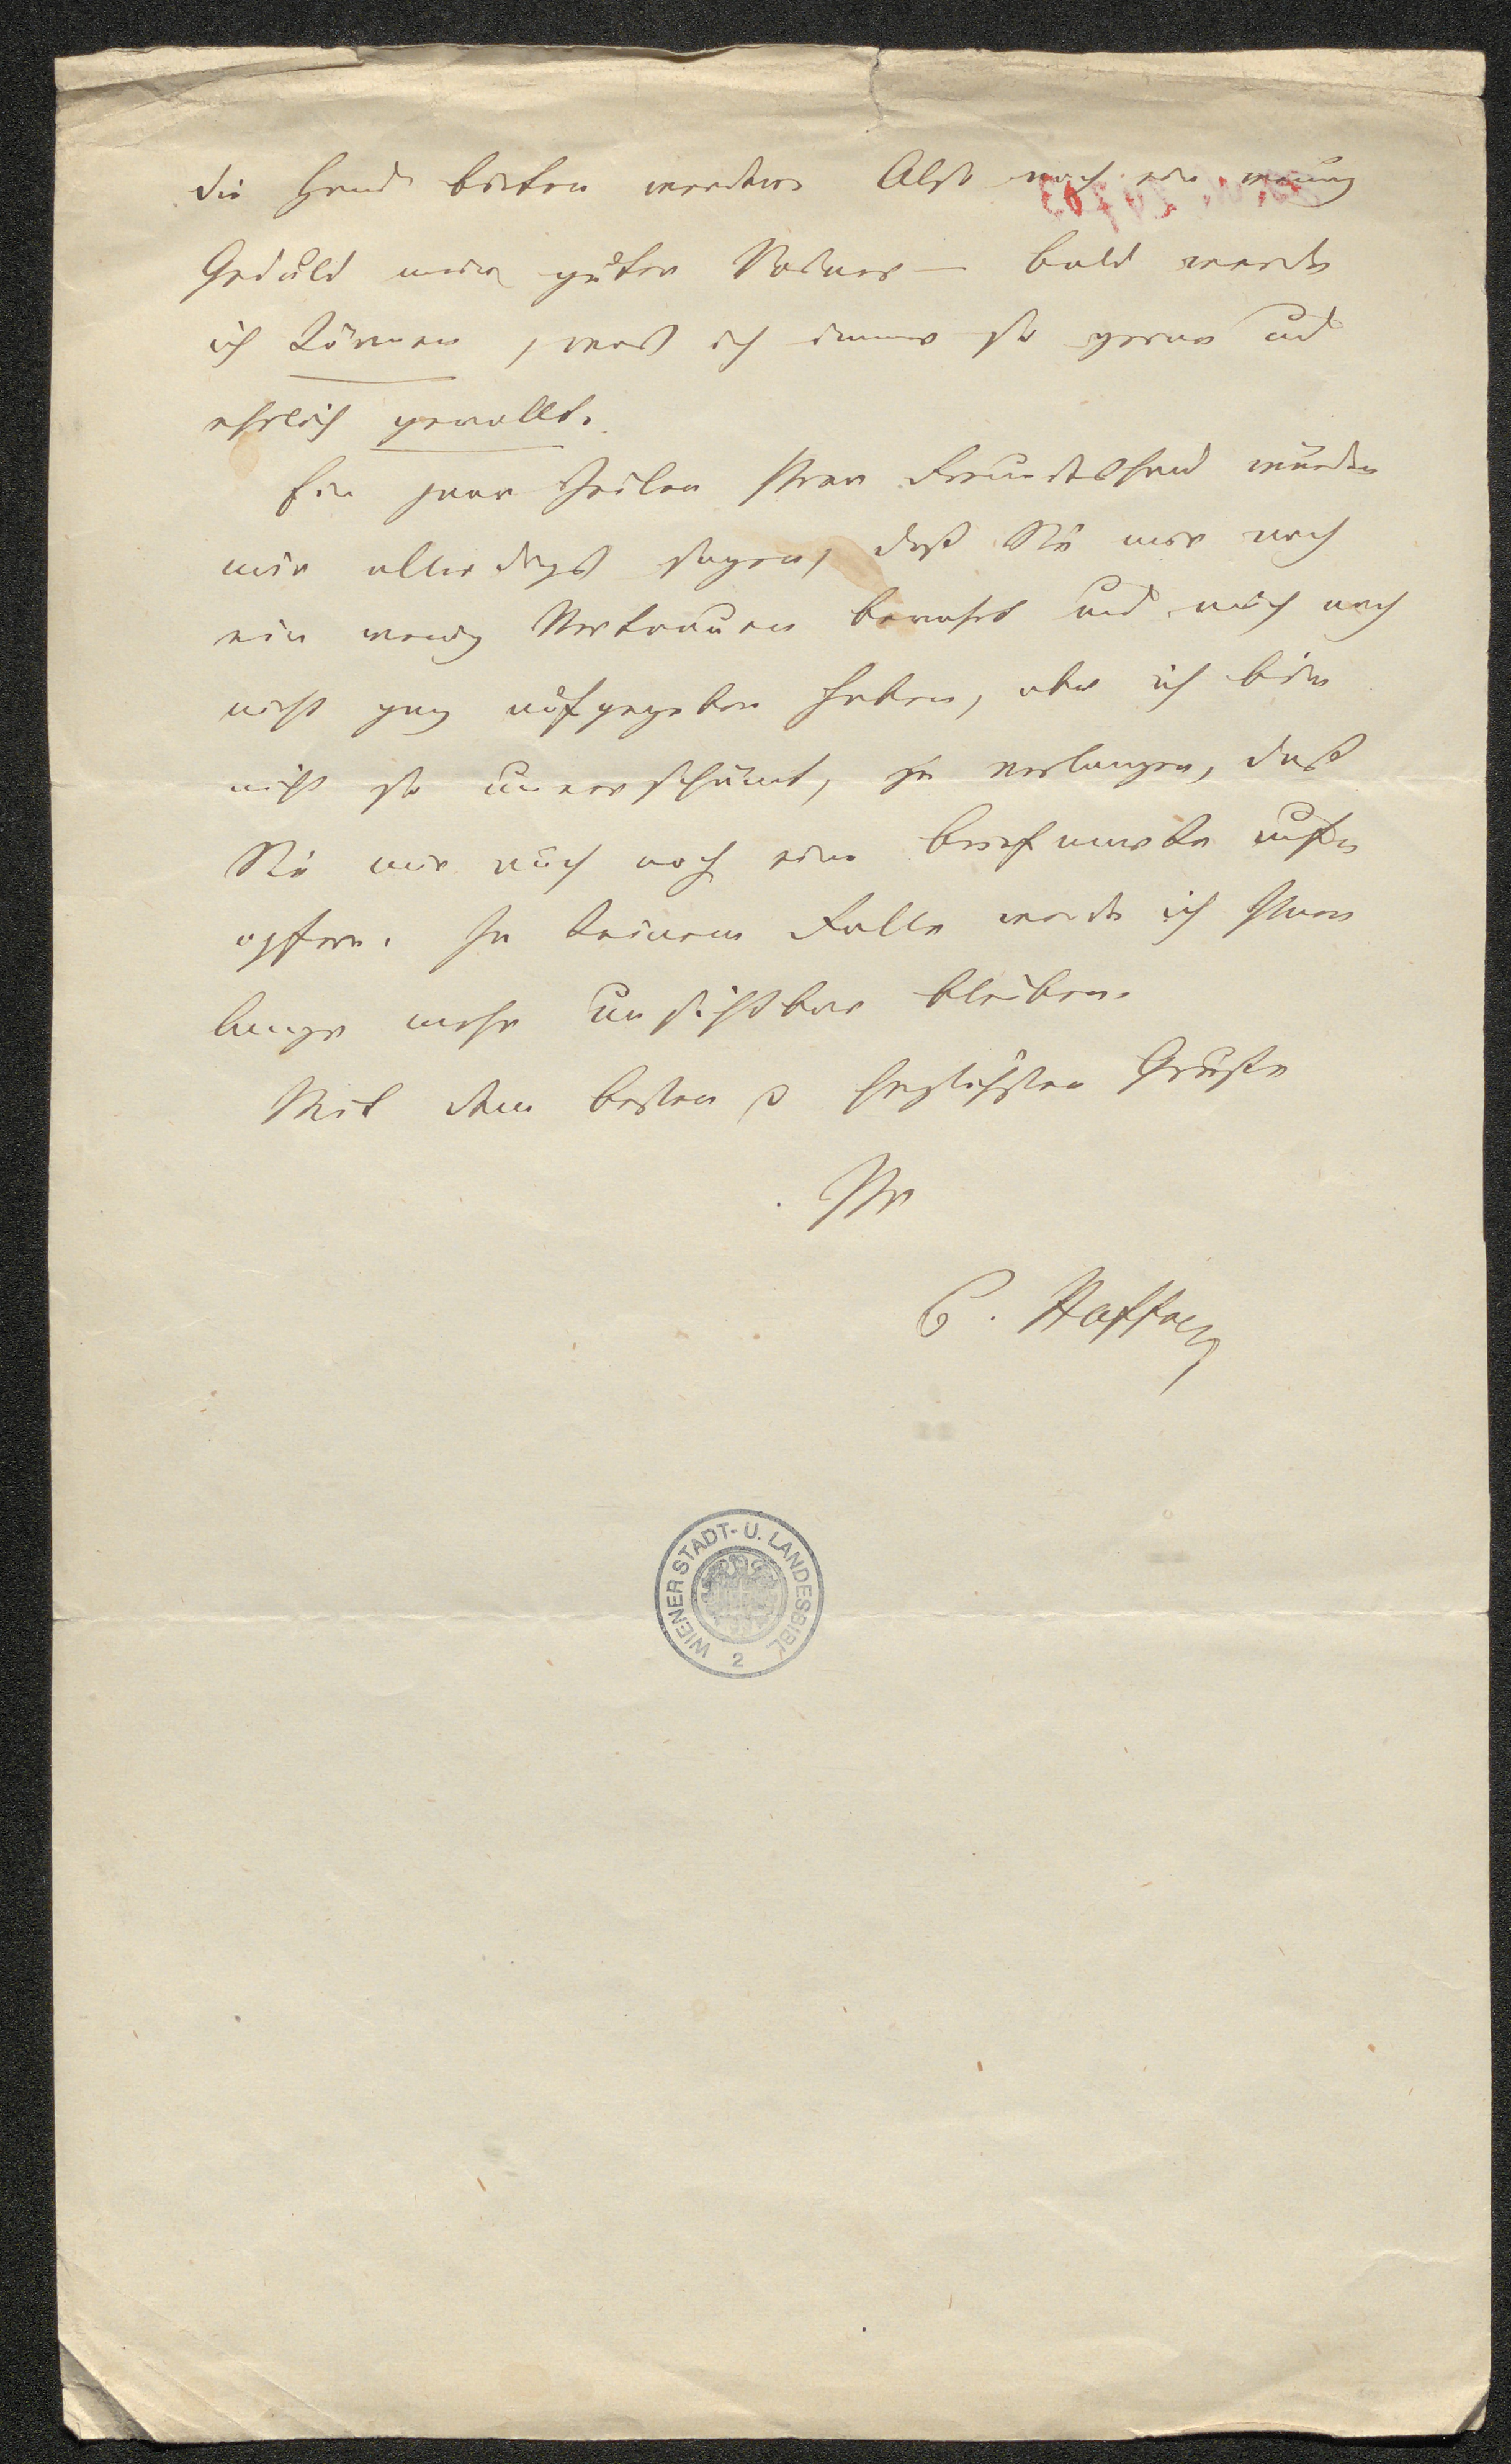 die Hand bieten werden. Also noch ein wenig
Geduld mein guter – bald werde
ich können, was ich immer so gerne und
ehrlich gewollt.
Ein paar Zeilen Ihrer Freundeshand würden
mir allerdings sagen, daß Sie mir noch
ein wenig Vertrauen bewahrt und mich noch
nicht ganz aufgegeben haben, aber ich bin
nicht so unverschämt, zu verlangen, daß
Sie mir auch noch eine Briefmarke
opfern. In keinem Falle werde ich Ihnen
lange mehr unsichtbar bleiben.
Mit dem besten & herzlichsten Gruße
Ihr
C. Haffner
WIENER STADT- U. LANDESBIBL.
2